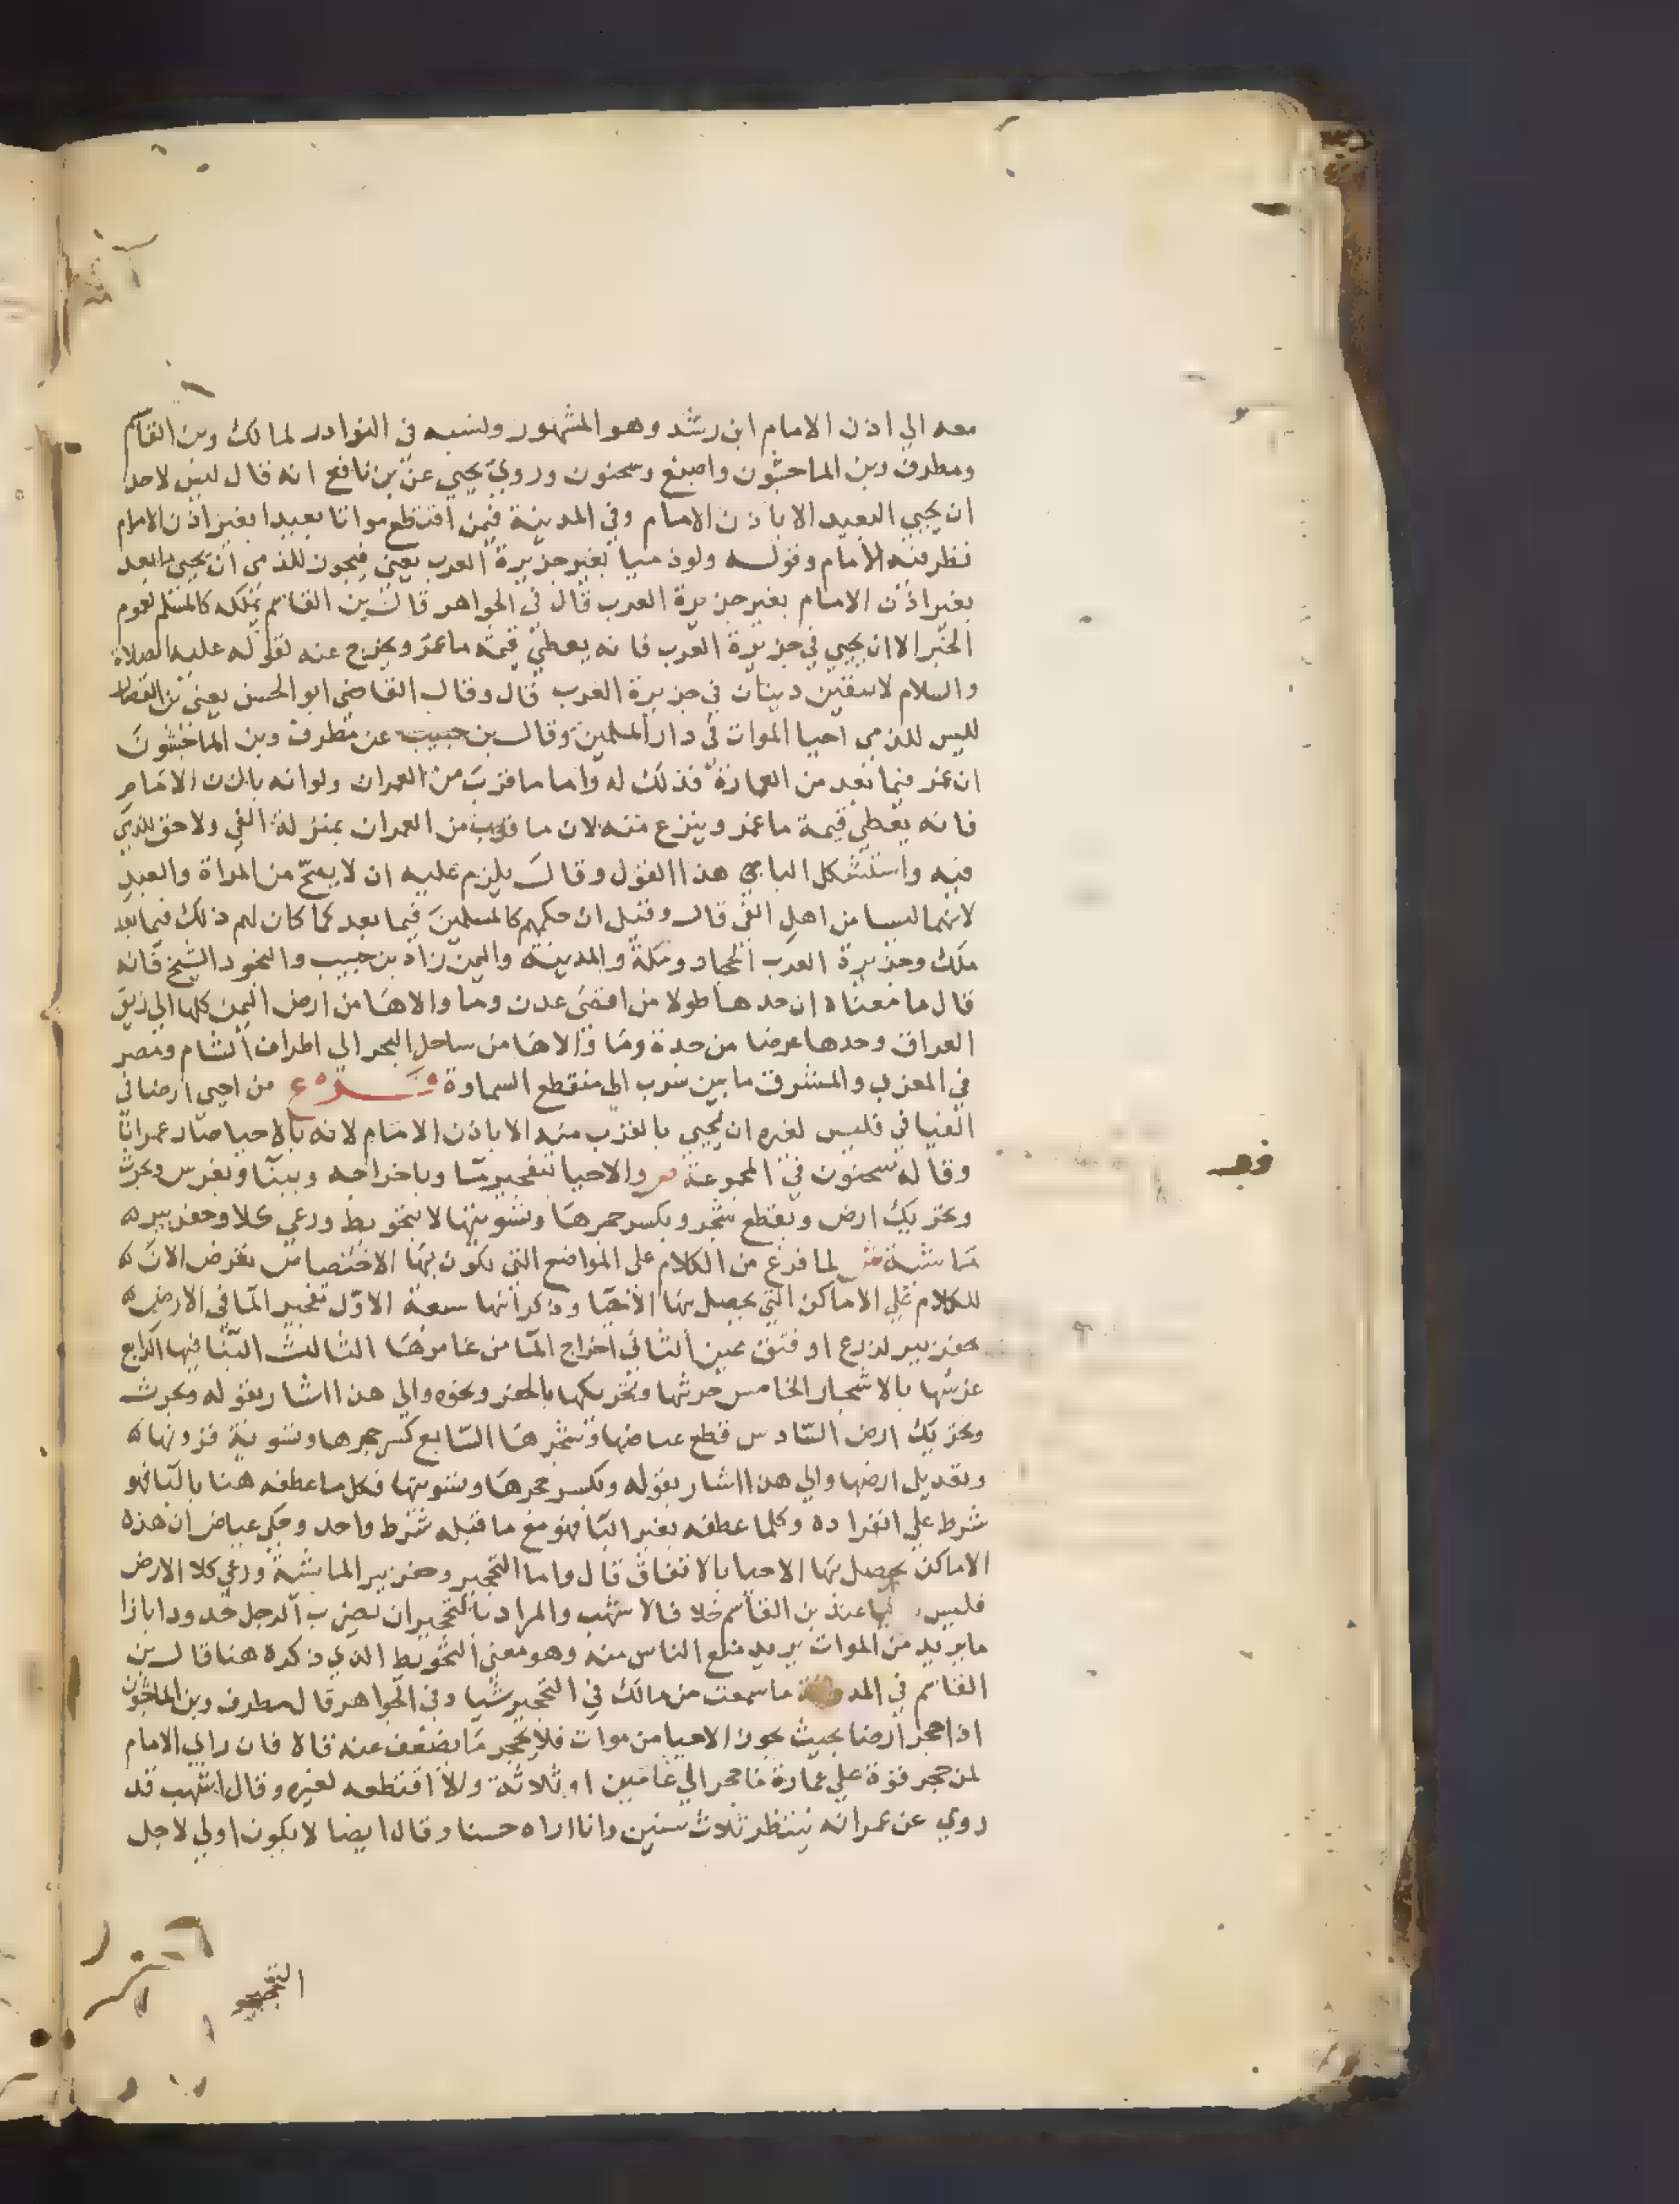 معه الي اذن الامام ابن رشد وهو المشهور ونسبه في النوادر لمالك وبن القاسم
ومطرف وبن الماجشون واصبغ وسحنون وروي يحيي عن بن نافع انه قال ليس لاحد
ان يحيي البعيد الا باذن الامام وفي المدينة فيمن اقتطع مواتا بعيدا بغير اذن الامام
نظر فيه الامام وقوله ولو ذميا بغير جزيرة العرب يعني فيجوز للذمي ان يحيي ما بعد
بغير اذن الامام بغير جزيرة العرب قال في الجواهر قال بن القاسم يملكه كالمسلم لعموم
الخبر الا ان يحيي في جزيرة العرب فانه يعطي قيمة ما عمر ويخرج عنه لقوله عليه الصلاة
والسلام لا يبقين دينان في جزيرة العرب قال وقال القاضي ابو الحسن يعني بن القصار
ليس للذمي احيا الموات في دار المسلمين وقال بن حبيب عن مطرف وبن الماجشون
ان عمر فيما بعد من العمارة فذلك له واما ما قرب من العمران ولو انه باذن الامام
فانه يعطي قيمة ما عمر وينزع منه لان ما قرب من العمران بمنزلة الفي ولا حق للذمي
فيه واستشكل الباجي هذا القول وقال يلزم عليه ان لا يصح من المراة والعبد
لانهما ليسا من اهل الفي قال وقيل ان حكمهم كالمسلمين فيما بعد كما كان لهم ذلك فيما بعد
ملك وجزيرة العرب الحجاز ومكة والمدينة واليمن زاد بن حبيب والنجود الشيخ فانه
قال ما معناه ان حدها طولا من اقصي عدن وما والاها من ارض اليمن كلها الي زيق
العراق وحدها عرضا من جدة وما والاها من ساحل البحر الي اطراف الشام ومصر
في المغرب والمشرق ما بين يثرب الي منقطع السماوة فروع من احيي ارضا في
الفيافي فليس لغيره ان يحيي بالقرب منه الا باذن الامام لانه بالاحيا صار عمرانا
وقاله سحنون في المجموعة ص والاحيا بتفجير ما وباخراجه وببنا وبغرس وبحرث
وتحريك ارض وبقطع شجر وبكسر حجرها وتسويتها لا بتحويط ورعي كلا وحفر بير
ماشية ش لما فرغ من الكلام علي المواضع التي يكون بها الاختصاص تعرض الان
للكلام علي الاماكن التي يحصل بها الاحيا وذكر انها سبعة الاول تفجير الما في الارض
بحفر بير لزرع او فتق عين الثاني اخراج الما من غامرها الثالث البنا فيها الرابع
غرسها بالاشجار الخامس حرثها وتحريكها بالحفر ونحوه والي هذا اشار بقوله وبحرث
وتحريك ارض السادس قطع غياضها وشجرها السابع كسر حجرها وتسوية فزونها
وتعديل ارضها والي هذا اشار بقوله وبكسر حجرها وتسويتها فكل ما عطفه هنا بالبا فهو
شرط علي انفراده وكلما عطفه بغير البا فهو مع ما قبله شرط واحد وحكي عياض ان هذه
الاماكن يحصل بها الاحيا بالاتفاق قال واما التحجير وحفر بير الماشية ورعي كلا الارض
فليس عند بن القاسم خلافا لاشهب والمراد بالتحجير ان يضرب الرجل حدودا بازا
ما يريد من الموات يريد منع الناس منه وهو معني التحويط الذي ذكره هنا قال بن
القاسم في المدونة ما سمعت من مالك في التحجير شيا وفي الجواهر قال مطرف وبن الماجشون
اذا حجر ارضا بحيث يجوز الاحيا من موات فلا يحجر ما يضعف عنه فاه فان راي الامام
لمن حجر قوة علي عمارة ما حجر الي عامين او ثلاثة والا اقتطعه لغيره وقال اشهب قد
روي عن عمر انه ينتظر ثلاث سنين وانا اراه حسنا وقال ايضا لا يكون اولي لاجل
التحجير